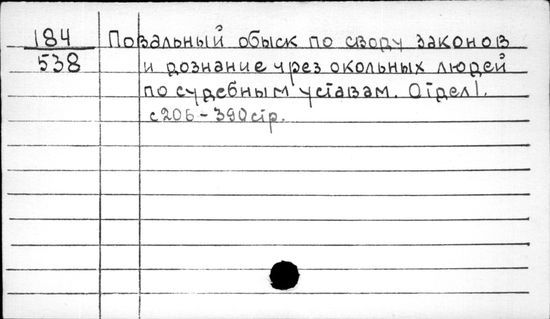 184 Повальный обыск по своду законов
538 и дознание чрез окольных людей
по судебным уставам. Отдел I.
с 206-390 стр.